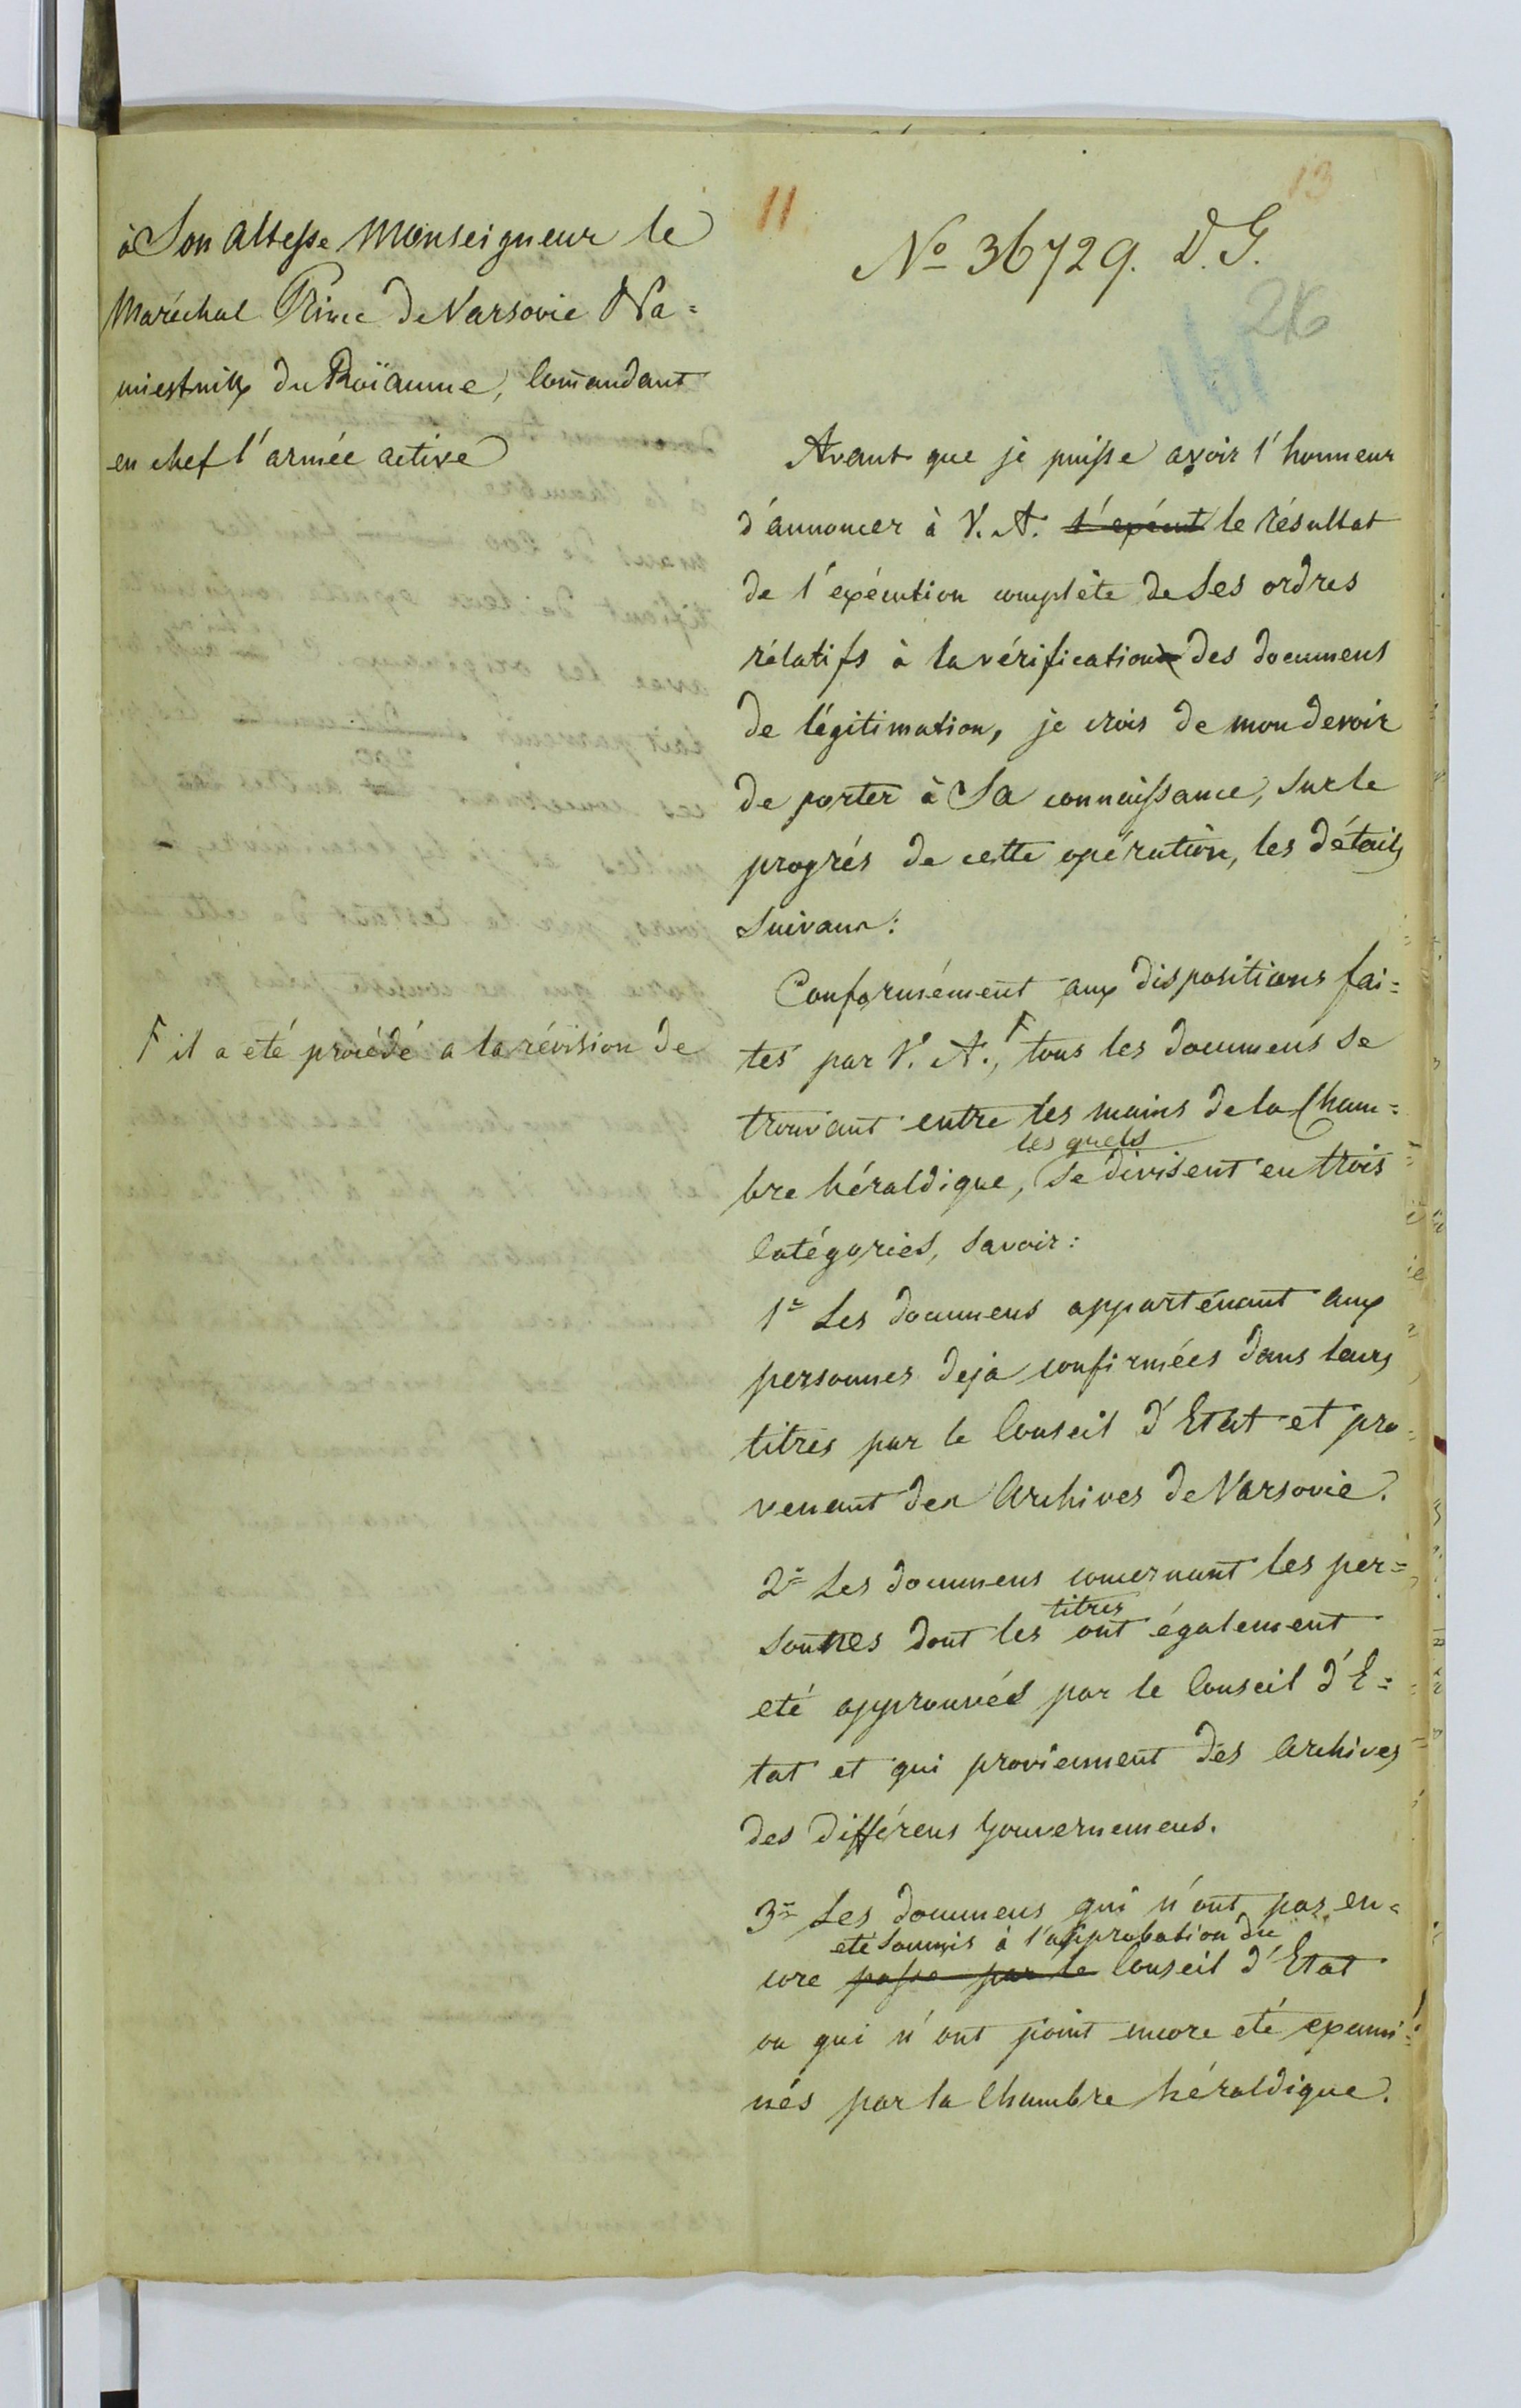 11
13
à Son Altesse Monseigneur le
Maréchal Prince de Varsovie Na=
miestnik du Roïaume, Comandant
en chef l'armée active
№ 36729. D. G.
26
Avant que je puisse avoir l'honneur
d'annoncer à V. A. l'exécut le résultat
de l'exécution complète de Ses ordres
rélatifs à la vérification des documens
de légitimation, je crois de mon devoir
de porter à Sa connaissance, sur le
progrés de cette opération, les détails
suivans:
Conformément aux dispositions fai=
tes par V. A., F tous les documens se
F il a eté procédé a la révision de
trouvant entre les mains de la Cham=
les quels
bre héraldique, se divisent en trois
Catégories, savoir:
1º Les documens appartenant aux
personnes deja confirmées dans leurs
titres par le Conseil d'Etat et pro=
venant des Archives de Varsovie.
2º Les documens concernant les per=
titres
sonnes dont les ont également
eté approuvés par le Conseil d'E=
tat et qui proviennent des Archives
des différens Gouvernemens.
3º Les documens qui n'ont pas en=
eté soumis à l'approbation du
core passe par le Conseil d'Etat
ou qui n'ont point encore eté exami=
nés par la Chambre héraldique.